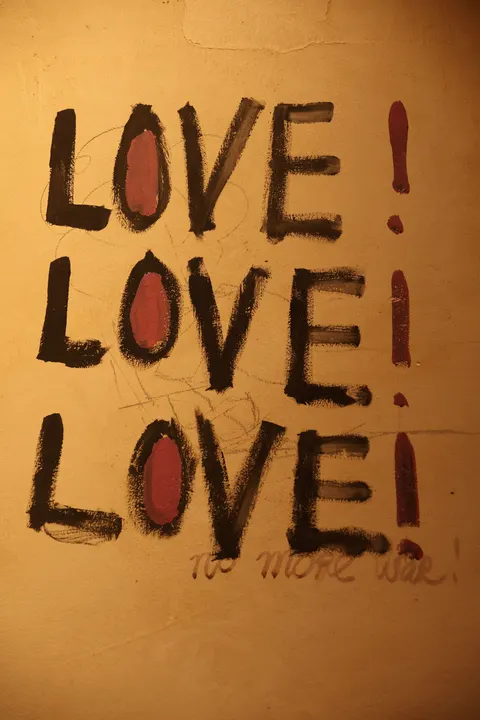 LOVE!
LOVE!
LOVE!
no more war!